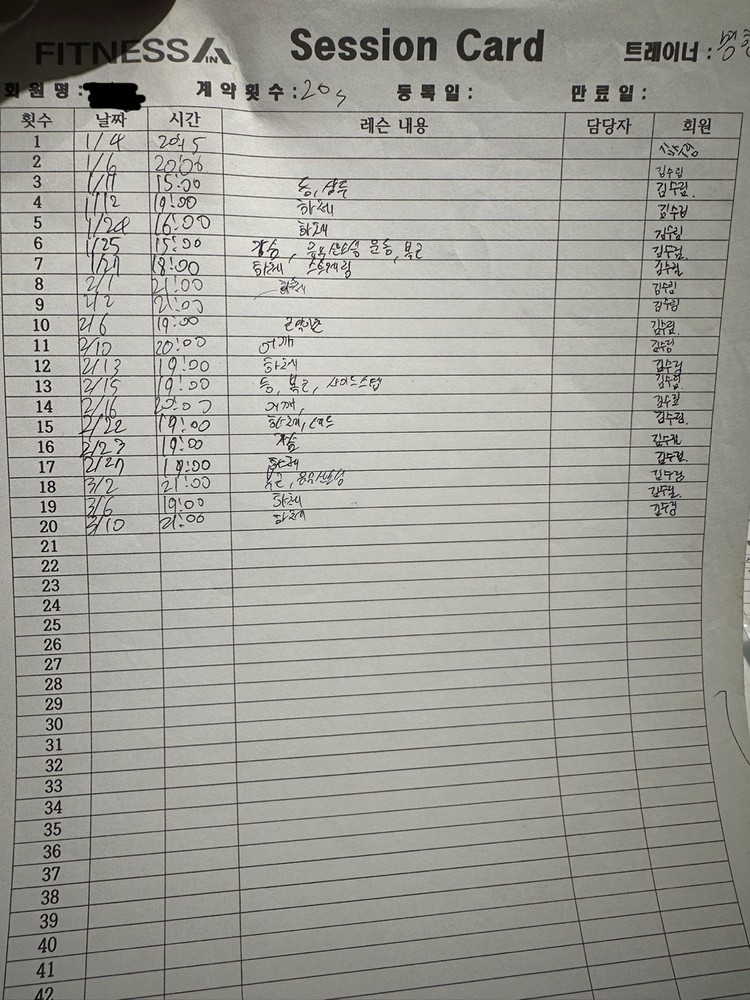 FITNESS IN Session Card 트레이너 :
회원명 : 계약횟수 : 20 등록일 : 만료일 :
횟수 날짜 시간 레슨 내용 담당자 회원
1 1/4 20:15
2 1/6 20:00 김수림
3 1/11 15:00 등, 김수림.
4 1/12 19:00 하체 김수림
5 1/24 16:00 하체 김수림
6 1/25 15:00 가슴, 유산소성 운동, 복근 김수림.
7 1/27 18:00 하체 김수림
8 2/1 21:00 김수림
9 2/2 21:00 김수림
10 2/6 19:00 김수림.
11 2/10 20:00 어깨 김수림
12 2/13 19:00 하체 김수림
13 2/15 19:00 등, 복근, 사이드스텝 김수림.
14 2/16 20:00 어깨, 김수림
15 2/22 19:00 하체, 김수림.
16 2/23 19:00 가슴 김수림
17 2/27 19:00 하체 김수림.
18 3/2 21:00 김수림
19 3/6 19:00 하체 김수림.
20 3/10 21:00 하체 김수림
21
22
23
24
25
26
27
28
29
30
31
32
33
34
35
36
37
38
39
40
41
42